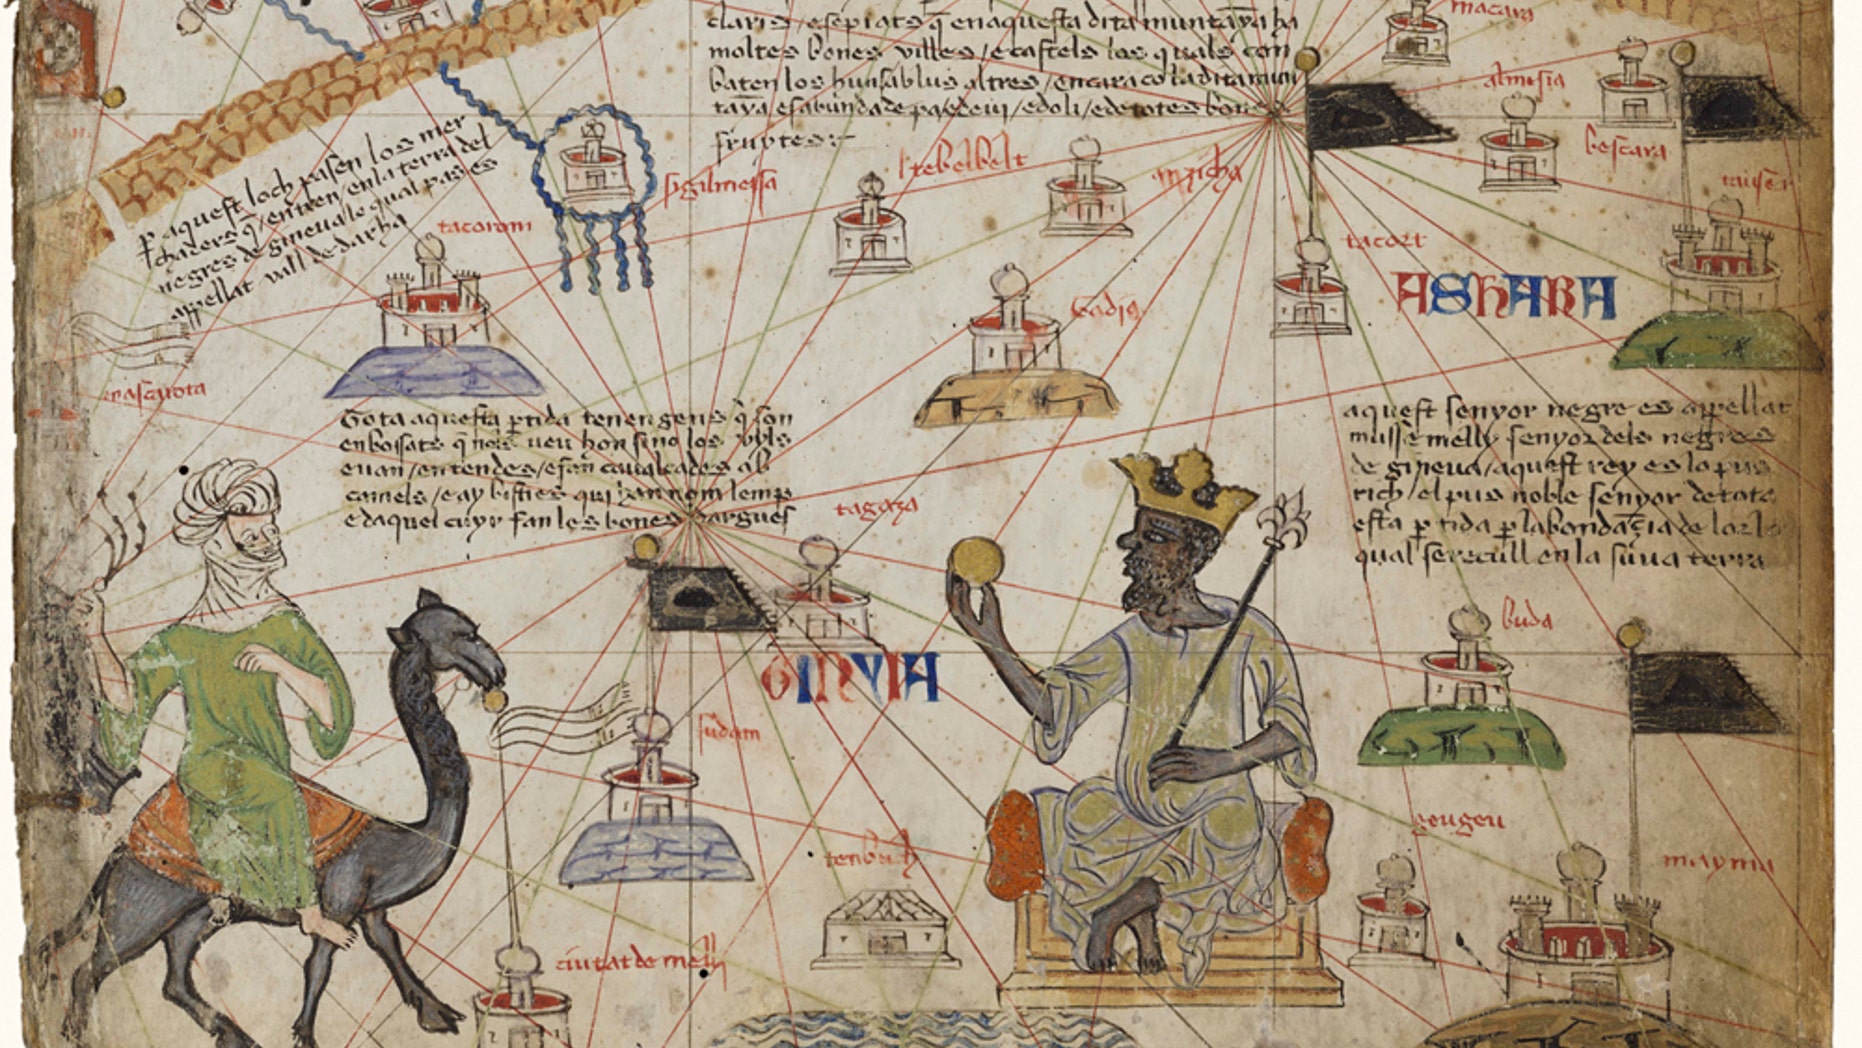 claris / e sepiats q̄ en aquesta dita muntaya ha
moltes bones villes / e castels los quals con
baten los huns ab lus altres / encara co la dita mun
taya es abundade pa e de vi / e doli / e de totes bones
fruytes :-
macara
almisia
bescara
p̄ aquest loch pasen los mer
chaders q̄ / entren / en la terra del
negres de gineua lo qual pas es
appellat vall de darha
tacoromi
sigilmessa
tebelbelt
tacort
ASHARA
tagaza
Tota aquesta p̄tida tenen gens q̄ son
enbossats q̄ nols veu hon sino los uyls
e uan / en tendes / e fan caualcades ab
camels / e ay bisties qui han nom lemp
e daquel cuyr fan les bones dargues
aquest senyor negre es appellat
musse melly senyor dels negres
de gineua / aquest rey es lo pus
rich / el pus noble senyor de tota
esta p̄tida p̄ labondāçia de lor lo
qual se recull en la suua terra
buda
GINYIA
sudam
tenbuch
geugeu
mayma
ciutat de melli